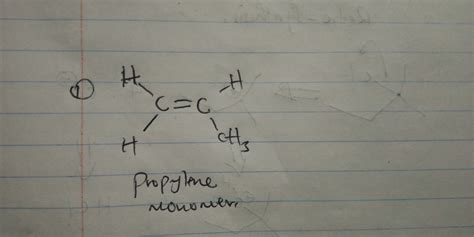 ①
H H
C=C
H CH3
Propylene
monomer